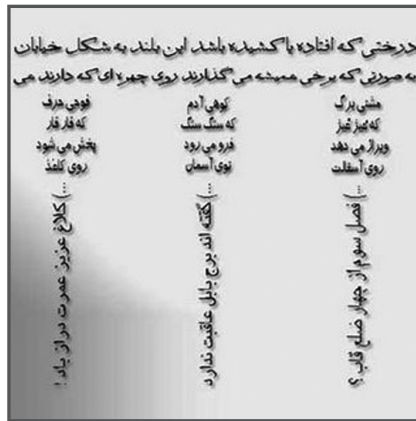 درختی که افتاده یا کشیده باشد این بلند به شکل خیابان
به صورتی که برخی همیشه می گذارند روی چهره ای که دارند می
مشتی برگ
که غیژ غیژ
ویراژ می دهد
روی آسفالت
...) فصل سوم از چهار ضلع قاب ؟
کوهی آدم
که سنگ سنگ
فرو می رود
توی آسمان
...) گفته اند برج بابل عاقبت ندارد
فوجی حرف
که قار قار
پخش می شود
روی کاغذ
...) کلاغ عزیز عمرت دراز باد !